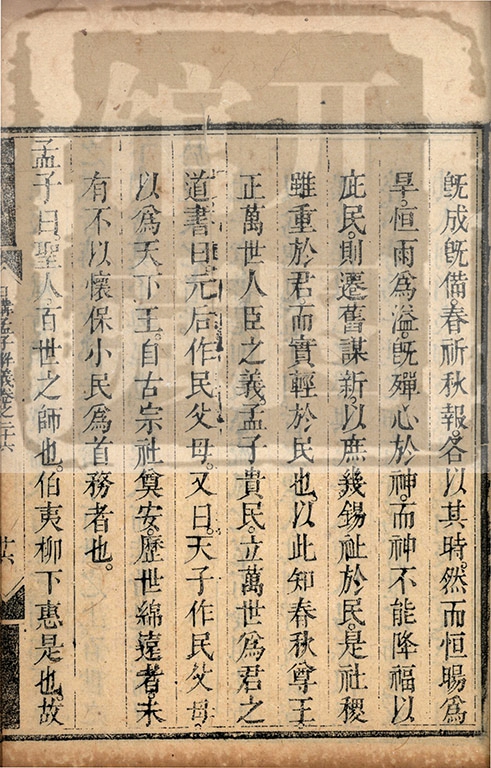 既成既備。春祈秋報。各以其時。然而恒暘為
旱。恒雨為溢。既殫心於神。而神不能降福以
庇民。則遷舊謀新。以庶幾錫祉於民。是社稷
雖重於君。而實輕於民也。以此知春秋尊王。
正萬世人臣之義。孟子貴民。立萬世為君之
道。書曰。元后作民父母。又曰。天子作民父母。
以為天下王。自古宗社奠安。歷世綿遠者。未
有不以懷保小民為首務者也。
孟子曰。聖人百世之師也。伯夷柳下惠是也。故
日講孟子解義卷之二十六
廿六